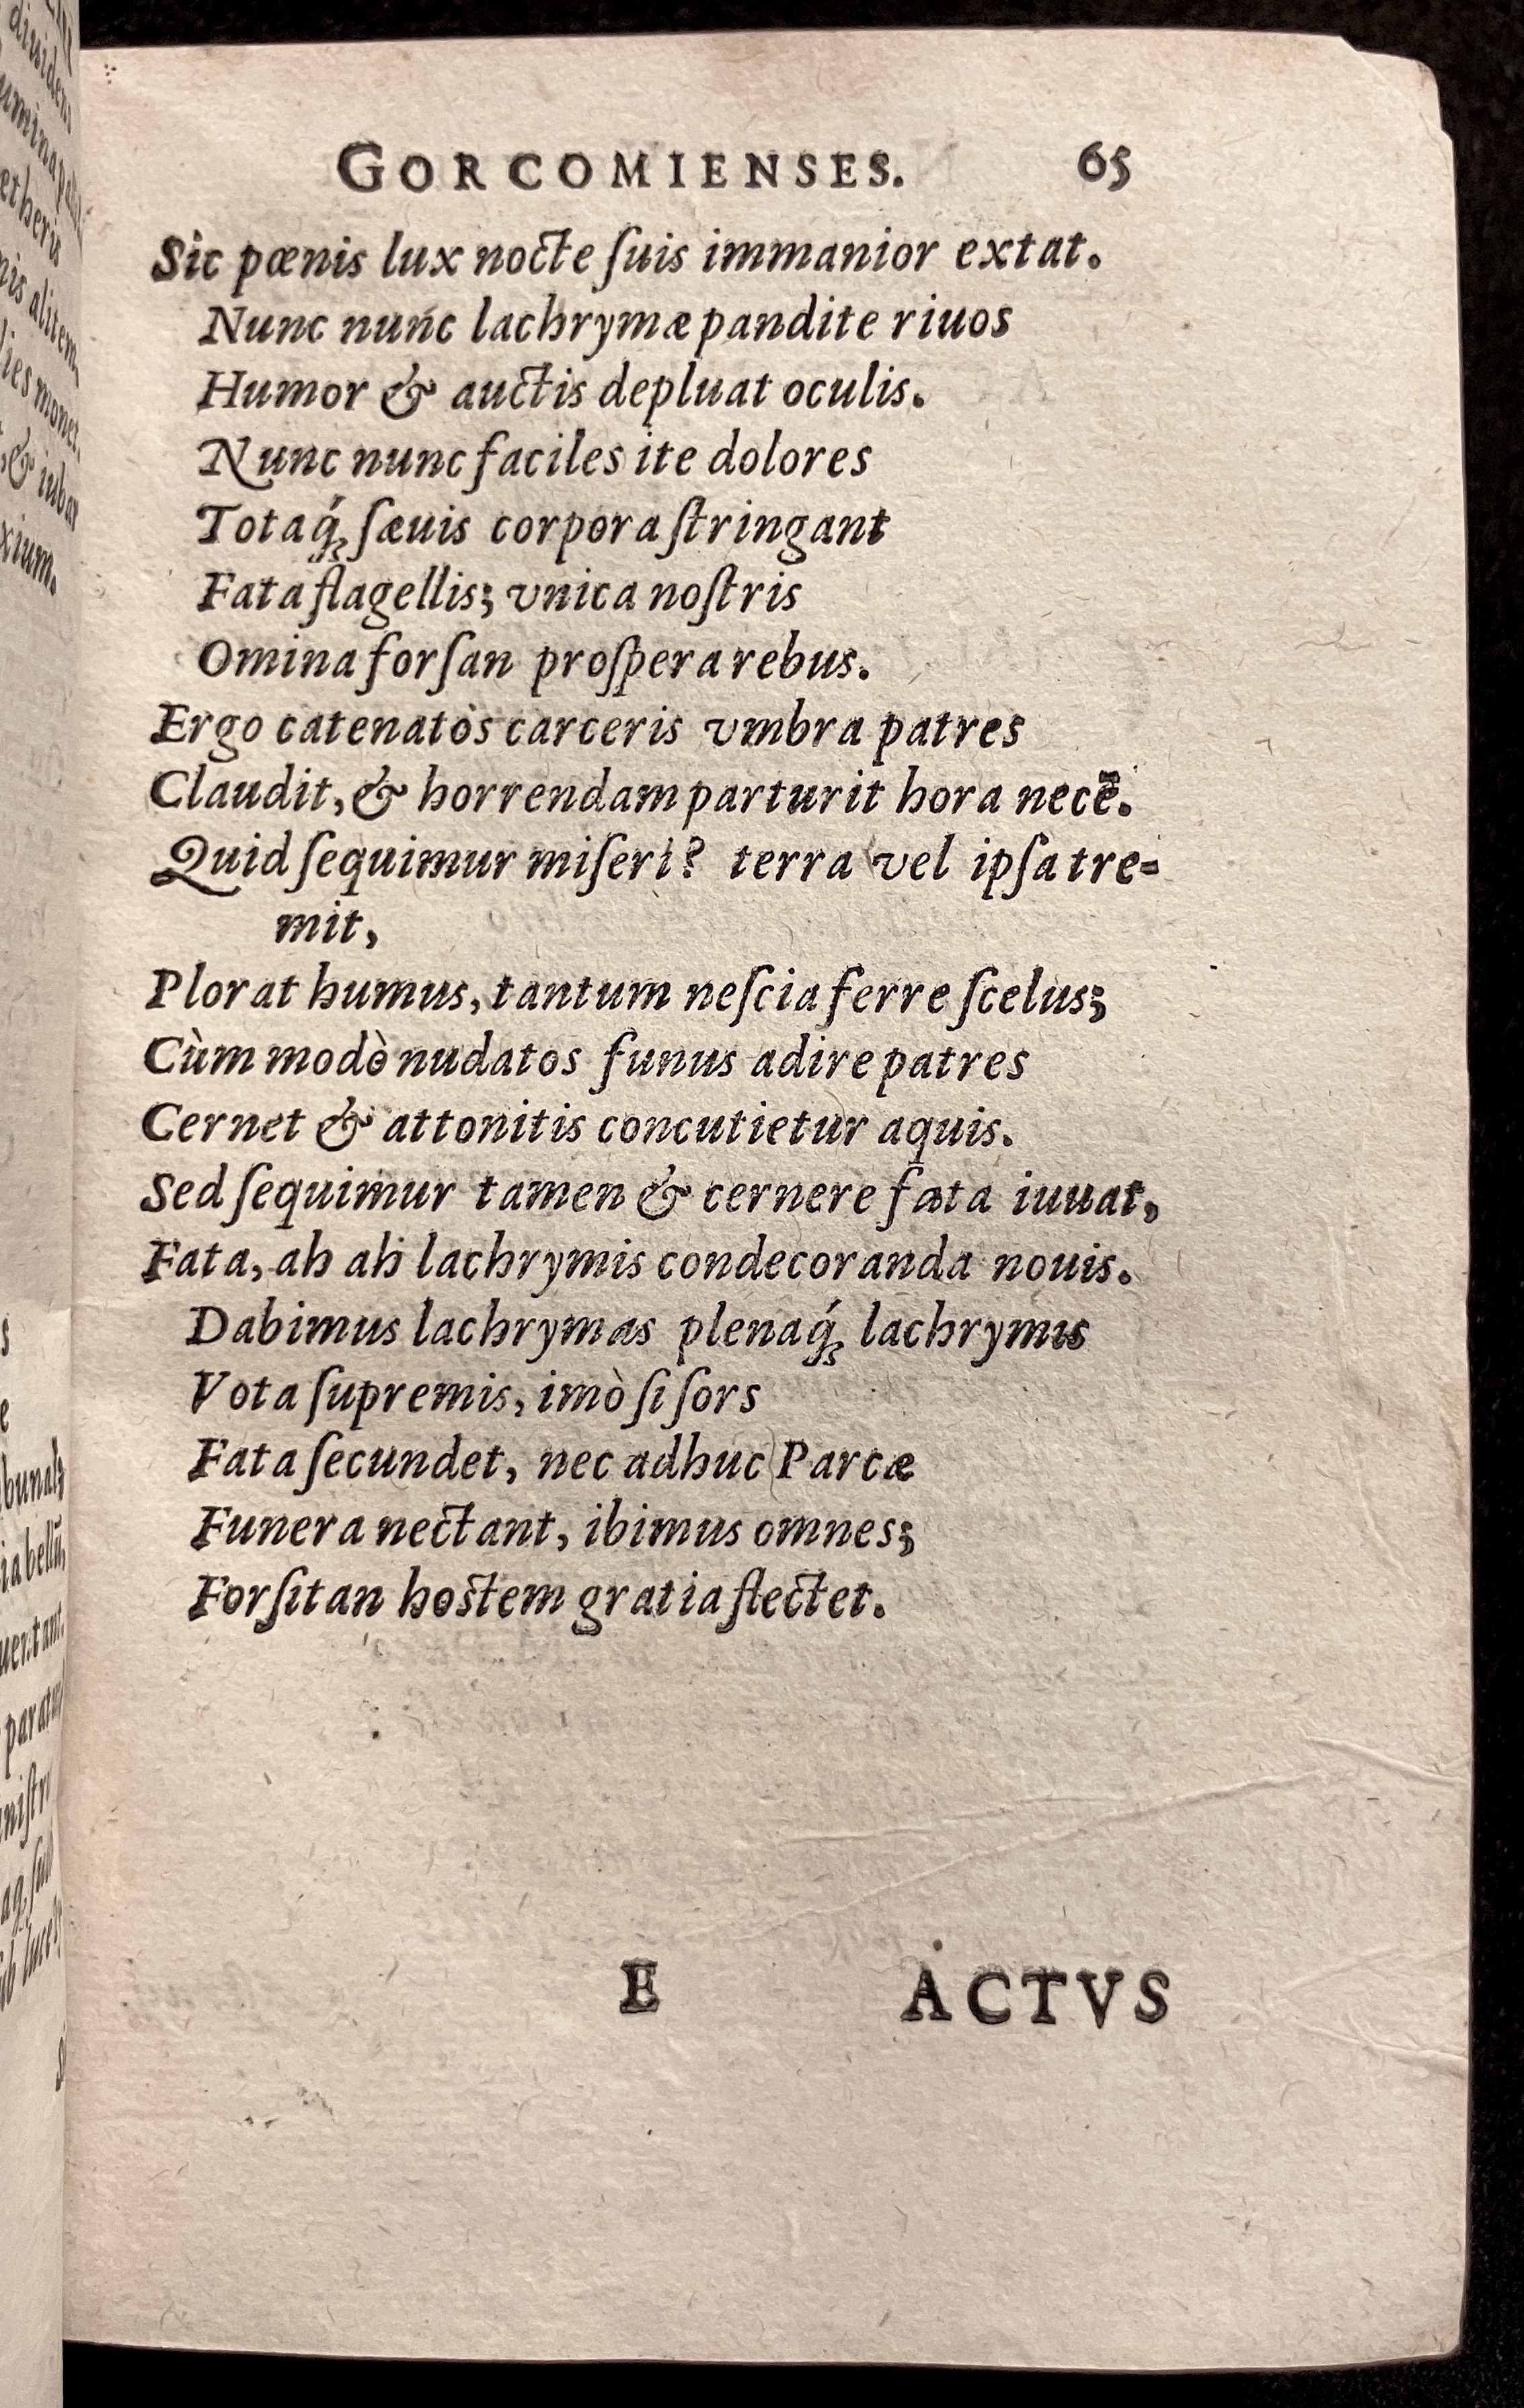 GORCOMIENSES. 65
Sic pœnis lux nocte ſuis immanior extat.
Nunc nunc lachrymæ pandite riuos
Humor & auctis depluat oculis.
Nunc nunc faciles ite dolores
Totaq́; ſæuis corpora ſtringant
Fata flagellis; vnica noſtris
Omina forſan proſpera rebus.
Ergo catenatos carceris vmbra patres
Claudit, & horrendam parturit hora necē.
Quid ſequimur miſeri? terra vel ipſa tre-
mit,
Plorat humus, tantum neſcia ferre ſcelus;
Cùm modò nudatos funus adire patres
Cernet & attonitis concutietur aquis.
Sed ſequimur tamen & cernere fata iuuat,
Fata, ah ah lachrymis condecoranda nouis.
Dabimus lachrymas plenaq́; lachrymis
Vota ſupremis, imò ſi ſors
Fata ſecundet, nec adhuc Parcæ
Funera nectant, ibimus omnes;
Forſitan hostem gratia flectet.
E ACTVS